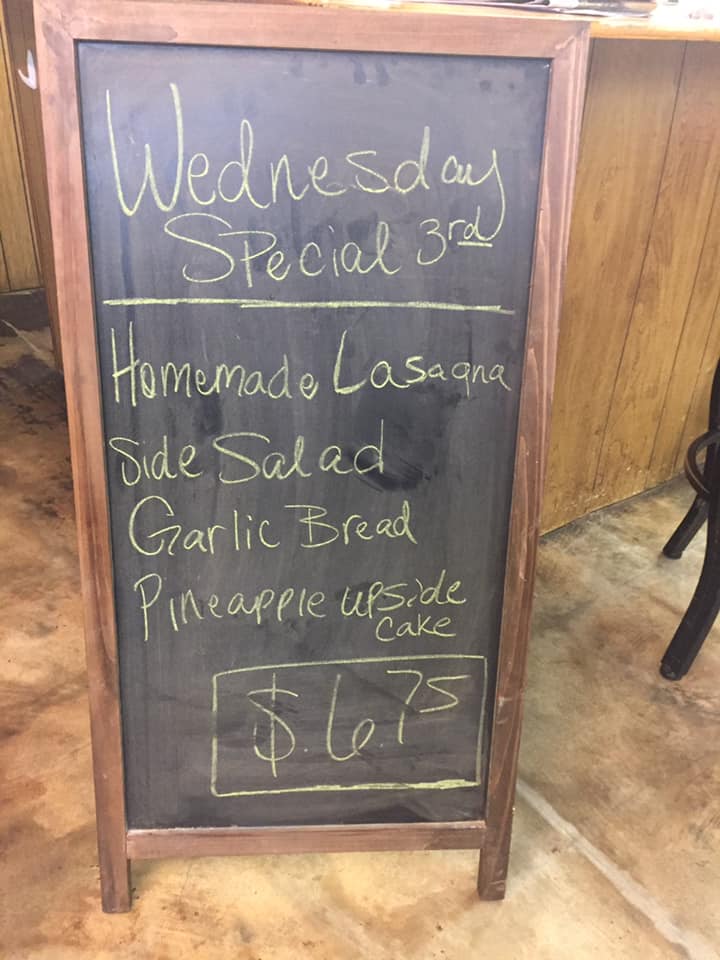 Wednesday
Special 3rd
Homemade Lasagna
Side Salad
Garlic Bread
Pineapple upside
cake
$.6.75